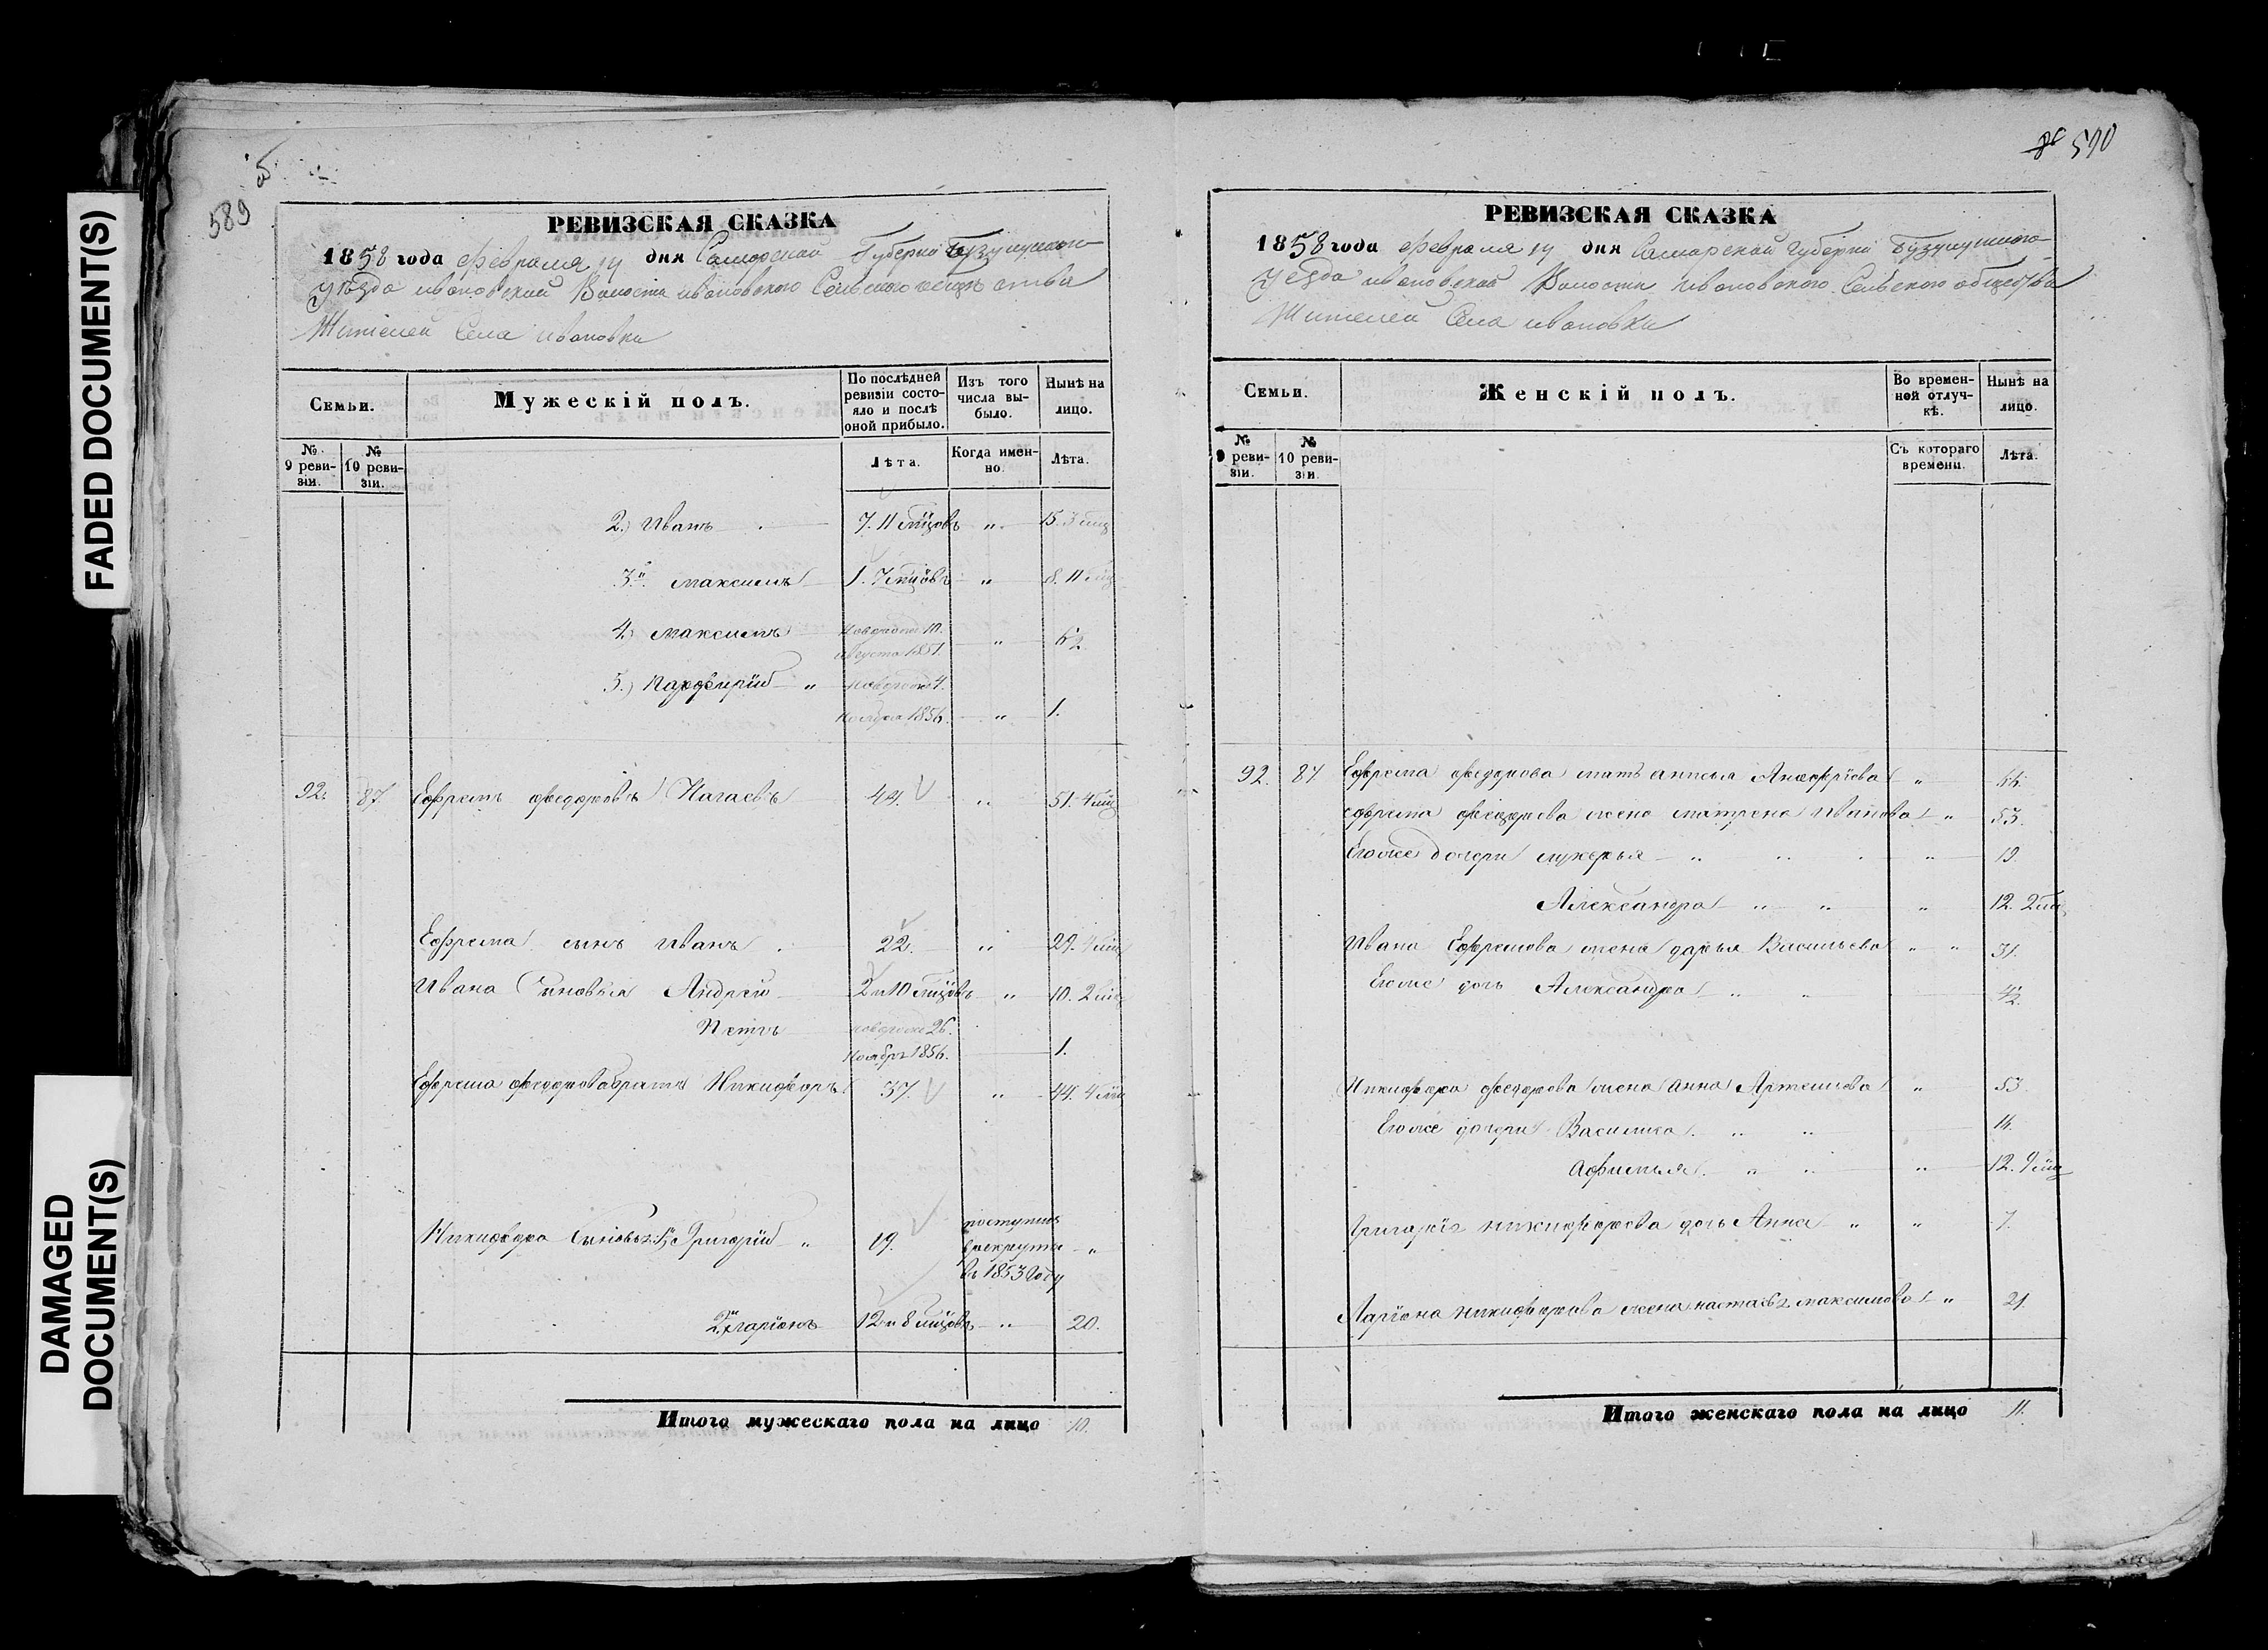 FADED DOCUMENT(S)
DAMAGED
DOCUMENT(S)
589
РЕВИЗСКАЯ СКАЗКА
1858 года февраля 14 дня Самарской Губерни Бузулукскаго
уѣзда ивановской Волости ивановского Сельского общества
Жителей Села ивановки
Семьи.
Мужескій полъ.
По послѣдней
ревизіи состо-
яло и послѣ
оной прибыло.
Изъ того
числа вы-
было.
Нынѣ на
лицо.
№
9 реви-
зіи.
№
10 реви-
зіи.
Лѣта.
Когда имен-
но.
Лѣта.
2.) Иванъ 7. 11 мцовъ „ 15. 3 мц
3й максимъ 1. 7 мцовъ „ 8. 11 мц
4.) максимъ новорожд 10. августа 1851. „ 6½
5.) Парфирий „ новорожд 4.
ноября 1856. „ 1.
92. 87. Ефремъ федоровъ Нагаевъ 44. „ 51. 4 мц
Ефрема сынъ Иванъ 22. „ 29. 4 мц
Ивана Сыновья Андрей 2 и 10 мцовъ „ 10. 2 мц
Петръ новорожд 26.
Ноябрь 1856. 1.
Ефрема федорова братъ Никифоръ 37. „ 44. 4 мц
Никифора Сыновья: 1й Григорий „ 19. поступилъ
в рекруты „
въ 1853 Году
2й ларионъ 12 и 8 мцовъ „ 20.
Итого мужескаго пола на лицо 10.
590
РЕВИЗСКАЯ СКАЗКА
1858 года февраля 14 дня Самарской губерни Бузулукского
Уезда ивановской Волости ивановского Сельского общества
Жителей Села ивановки
Семьи.
Женскій полъ.
Во времен-
ной отлуч-
кѣ.
Нынѣ на
лицо.
№
9 реви-
зіи.
№
10 реви-
зіи.
Съ котораго
времени.
Лѣта.
92. 87 Ефрема федорова мать анисья Анофрiева „
ефрема федорова жена матрена Иванова „ 53.
Егоже дочери лукерья „ „ „ 19.
Александра „ „ „ 12. 2 мц
Ивана Ефремова жена дарья Васильева „ „ 31.
Егоже дочь Александра „ „ 4½.
Никифора федорова жена Анна Артемьева „ 53
Егоже дочери Василиса „ „ 14.
Афимья „ „ „ 12. 9 мц
Григорiя никифорова дочь Анна „ „ 7.
Ларiона никифорова жена настасья максимова „ 21.
Итого женскаго пола на лицо 11.